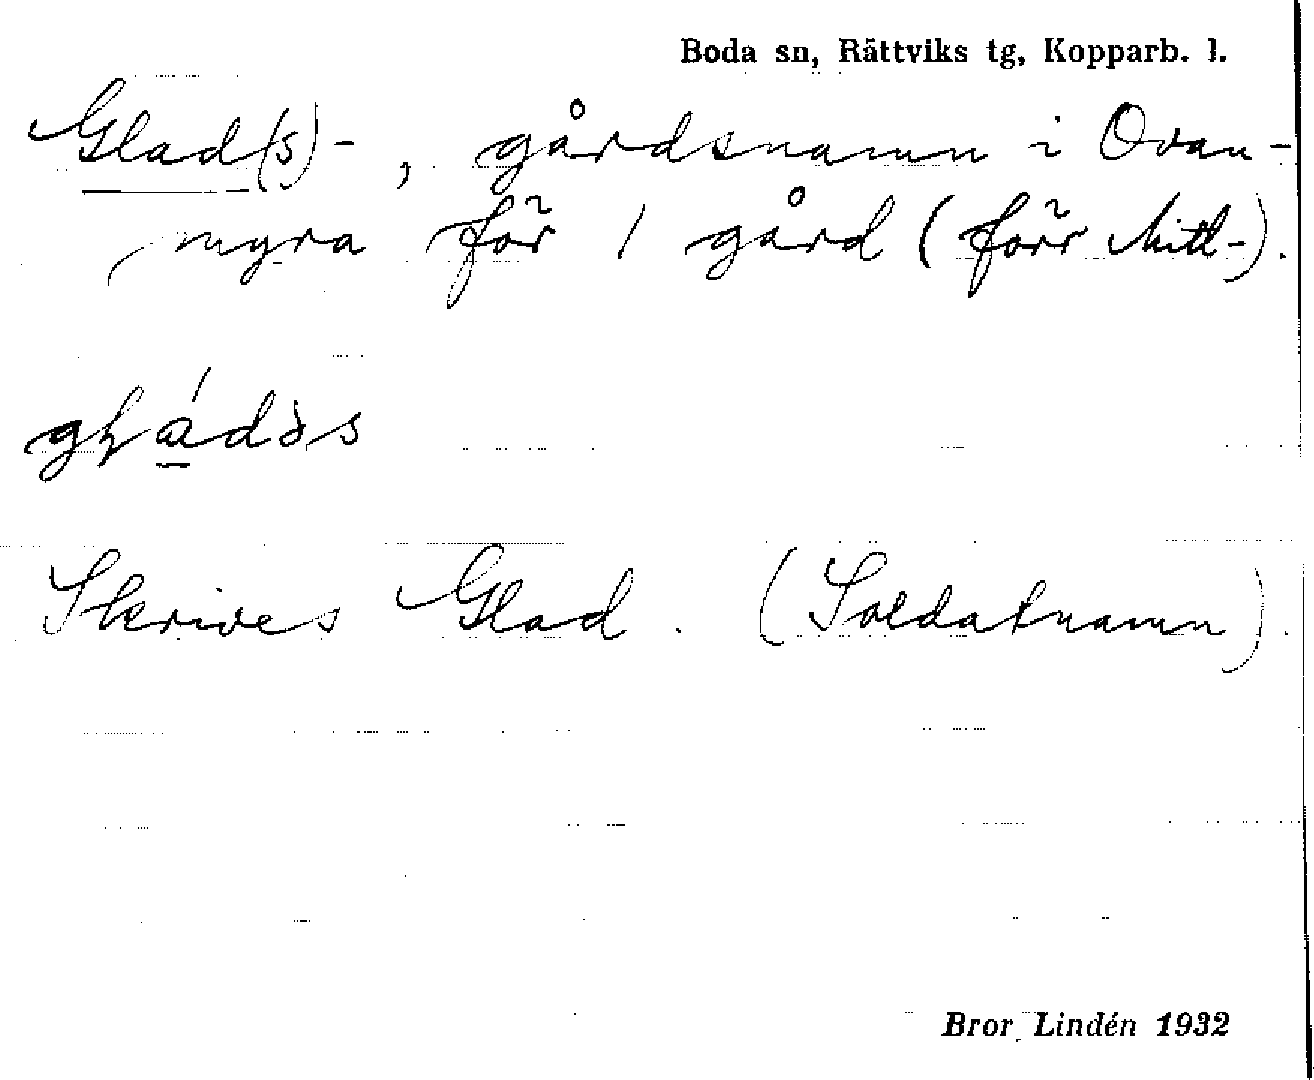 Boda sn, Rättviks tg, Kopparb. l.
Glad(s)- , gårdsnamn i Ovan-
myra för 1 gård (förr Mitt-).
Skrives Glad. (Soldatnamn).
Bror Lindén 1932